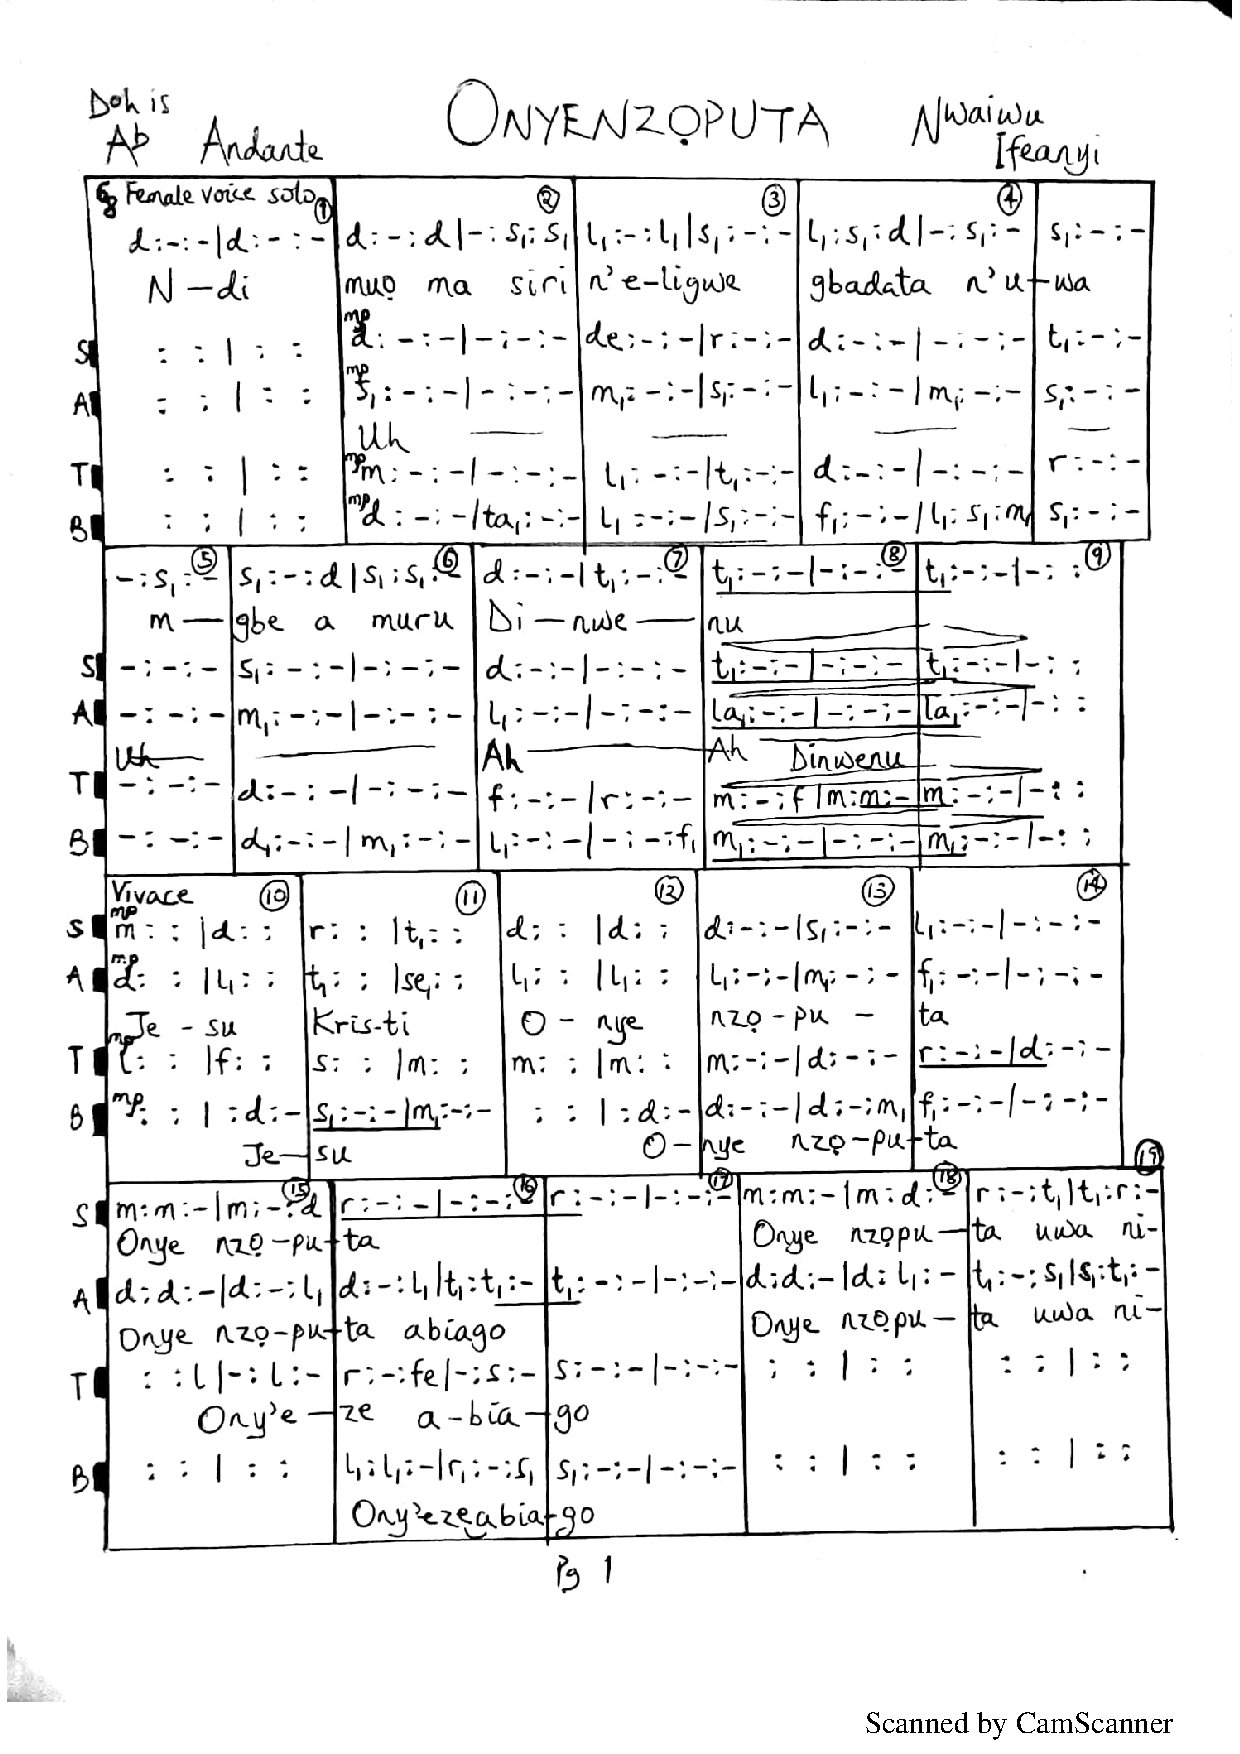 Doh is
Ab Andante
ONYENZỌPUTA
Nwaiwu
Ifeanyi
6/8 Female voice solo ① ② ③ ④
d:-:-|d:-:- d:-:d|-:s₁:s₁ l₁:-:l₁|s₁:-:- l₁:s₁:d|-:s₁:- s₁:-:-
N-di muọ ma siri n'e-ligwe gbadata n'u-wa
S : : | : : mp d:-:-|-:-:- de:-:-|r:-:- d:-:-|-:-:- t₁:-:-
A : : | : : mp s₁:-:-|-:-:- m₁:-:-|s₁:-:- l₁:-:-|m₁:-:- s₁:-:-
Uh
T : : | : : mp m:-:-|-:-:- l₁:-:-|t₁:-:- d:-:-|-:-:- r:-:-
B : : | : : mp d:-:-|ta₁:-:- l₁:-:-|s₁:-:- f₁:-:-|l₁:s₁:m₁ s₁:-:-
⑤ ⑥ ⑦ ⑧ ⑨
-:s₁:- s₁:-:d|s₁:s₁:- d:-:-|t₁:-:- t₁:-:-|-:-:- t₁:-:-|-: :
m-gbe a muru Di-nwe-nu
S -:-:- s₁:-:-|-:-:- d:-:-|-:-:- t₁:-:-|-:-:- t₁:-:-|-: :
A -:-:- m₁:-:-|-:-:- l₁:-:-|-:-:- la₁:-:-|-:-:- la₁:-:-|-: :
Uh Ah Ah Dinwenu
T -:-:- d:-:-|-:-:- f:-:-|r:-:- m:-:f|m:m:- m:-:-|-: :
B -:-:- d₁:-:-|m₁:-:- l₁:-:-|-:-:f₁ m₁:-:-|-:-:- m₁:-:-|-: :
Vivace ⑩ ⑪ ⑫ ⑬ ⑭
S mp m: : |d: : r: : |t₁: : d: : |d: : d:-:-|s₁:-:- l₁:-:-|-:-:-
A mp d: : |l₁: : t₁: : |se₁: : l₁: : |l₁: : l₁:-:-|m₁:-:- f₁:-:-|-:-:-
Je-su Kris-ti O-nye nzọ-pu-ta
T mp l: : |f: : s: : |m: : m: : |m: : m:-:-|d:-:- r:-:-|d:-:-
B mp : : | :d:- s₁:-:-|m₁:-:- : : | :d:- d:-:-|d:-:m₁ f₁:-:-|-:-:-
Je-su O-nye nzọ-pu-ta
⑮ ⑯ ⑰ ⑱ ⑲
S m:m:-|m:-:d r:-:-|-:-:- r:-:-|-:-:- m:m:-|m:d:- r:-:t₁|t₁:r:-
Onye nzọ-pu-ta Onye nzọpu-ta uwa ni-
A d:d:-|d:-:l₁ d:-:l₁|t₁:t₁:- t₁:-:-|-:-:- d:d:-|d:l₁:- t₁:-:s₁|s₁:t₁:-
Onye nzọ-pu-ta abiago Onye nzọpu-ta uwa ni-
T : :l|-:l:- r:-:fe|-:s:- s:-:-|-:-:- : : | : : : : | : :
Ony'e-ze a-bia-go
B : : | : : l₁:l₁:-|r₁:-:s₁ s₁:-:-|-:-:- : : | : : : : | : :
Ony'ezeabia-go
Pg 1
Scanned by CamScanner